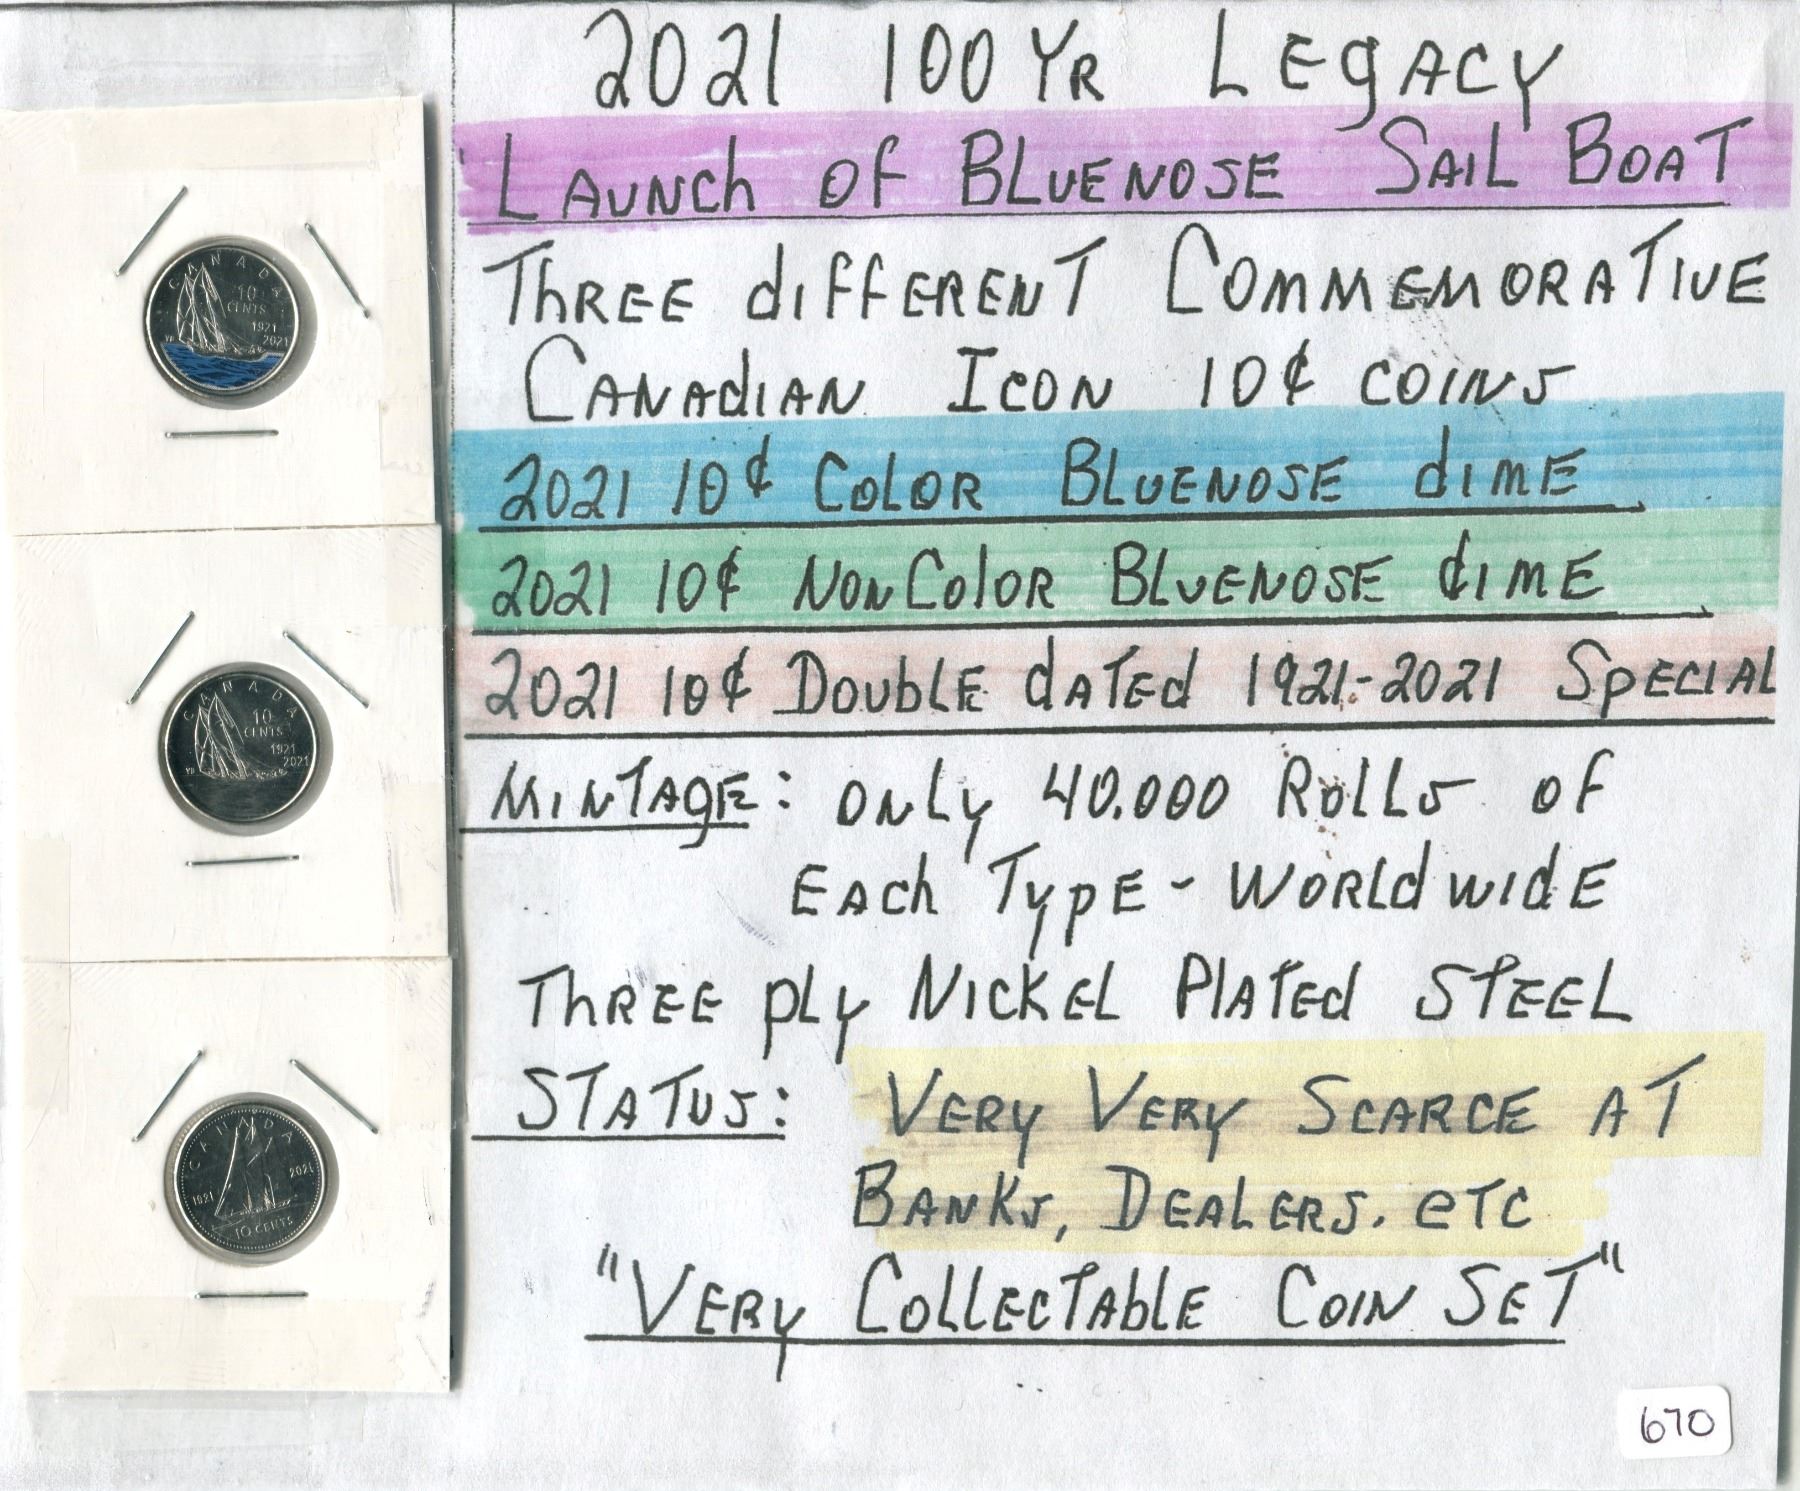 2021 100 YR LEGACY
LAUNCH OF BLUENOSE SAIL BOAT
THREE DIFFERENT COMMEMORATIVE
CANADIAN ICON 10¢ COINS
2021 10¢ COLOR BLUENOSE DIME
2021 10¢ NONCOLOR BLUENOSE DIME
2021 10¢ DOUBLE DATED 1921-2021 SPECIAL
MINTAGE: ONLY 40.000 ROLLS OF
EACH TYPE - WORLDWIDE
THREE PLY NICKEL PLATED STEEL
STATUS: VERY VERY SCARCE AT
BANKS, DEALERS. ETC
"VERY COLLECTABLE COIN SET"
670
CANADA
10
CENTS
1921
2021
CANADA
10
CENTS
1921
2021
CANADA
1921
2021
10 CENTS